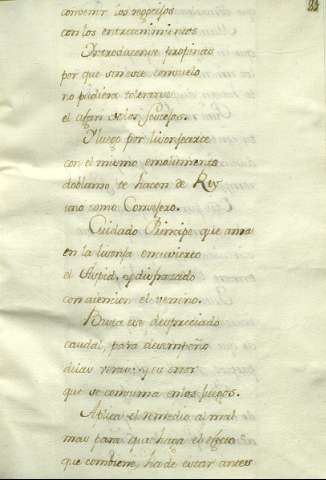 convenir los regocijos
con los entretenimientos
Introducense propinas
por que sin este consuelo
no pudiera tolerarse
el afan
Luego por lisonjearte
con el mismo emolumento
doblarno te hacen de Rey
uno como Consejero.
Cuidado Principe que anda
en la lisonja encuvierto
el Aspid, y disfrazado
con ademan el veneno.
Busca ese despreciado
caudal, para desempeño
de las rentas y su error
que se consuma en los fuegos.
Aplica el remedio al mal
mas para que haga el efecto
que combiene, ha de estar antes